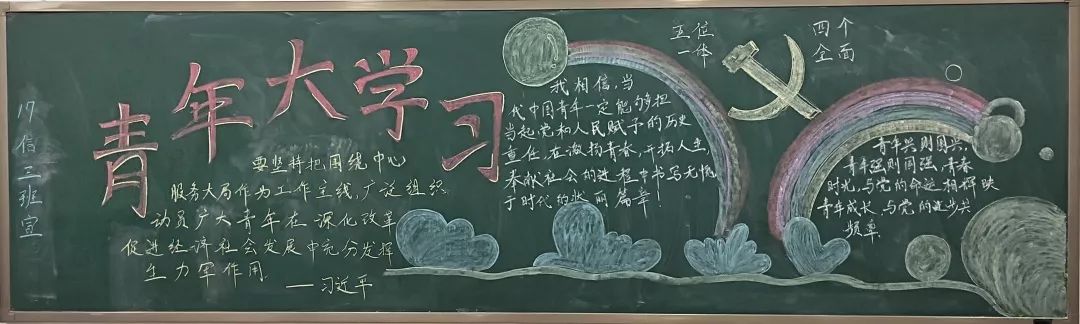 17信三班宣
青年大学习
要坚持把围绕中心
服务大局作为工作主线,广泛组织
动员广大青年在深化改革
促进经济社会发展中充分发挥
生力军作用
——习近平
我相信,当
代中国青年一定能够担
当起党和人民赋予的历史
重任,在激扬青春,开拓人生,
奉献社会的进程中书写无愧
于时代的壮丽篇章!
五位
一体
四个
全面
青年兴则国兴,
青年强则国强,青春
时光,与党的命运相辉映
青年成长,与党的进步共
频率